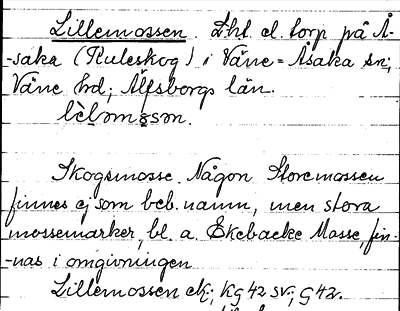 Lillemossen. Lht. el. torp på Å-
-saka (Ruleskog) i Väne-Åsaka sn;
Väne hd; Älfsborgs län.
Skogsmosse. Någon Storemossen
finnes ej som beb. namn, men stora
mossemarker, bl. a. Ekebacke Mosse, fin-
-nas i omgivningen
Lillemossen ek; KG42SV; G42.